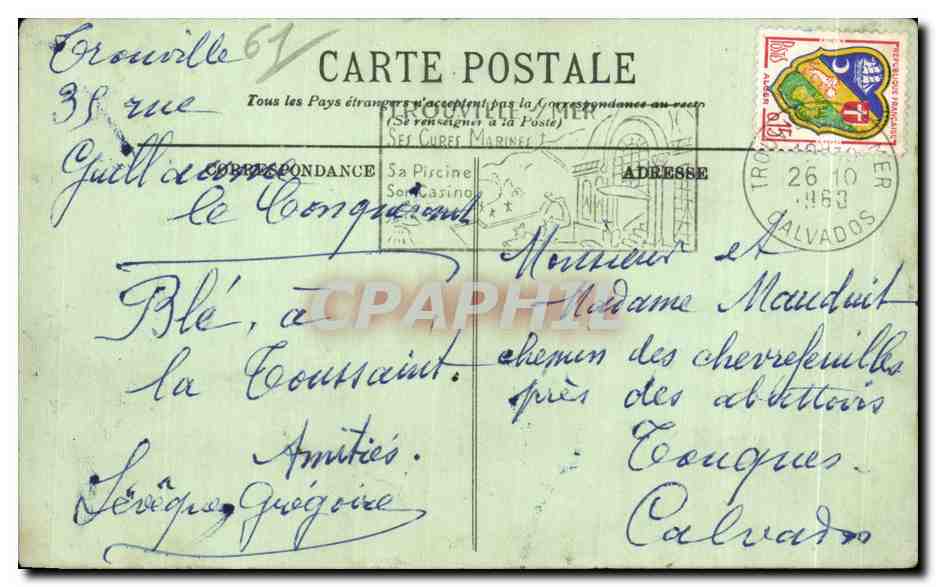 Trouville
35 rue
Guillaume
le Conquérant
Blé, à
la Toussaint.
Amitiés.
Grégoire
61
CARTE POSTALE
Tous les Pays étrangers n'acceptent pas la Correspondance au recto
(Se renseigner à la Poste)
CORRESPONDANCE
ADRESSE
TROUVILLE S/MER
SES CURES MARINES
Sa Piscine
Son Casino
POSTES
ALGER
0,15
REPUBLIQUE FRANCAISE
26-10
CALVADOS
Monsieur et
Madame Mauduit
chemin des chevrefeuilles
près des abattoirs
Touques.
Calvados
CPAPHIL